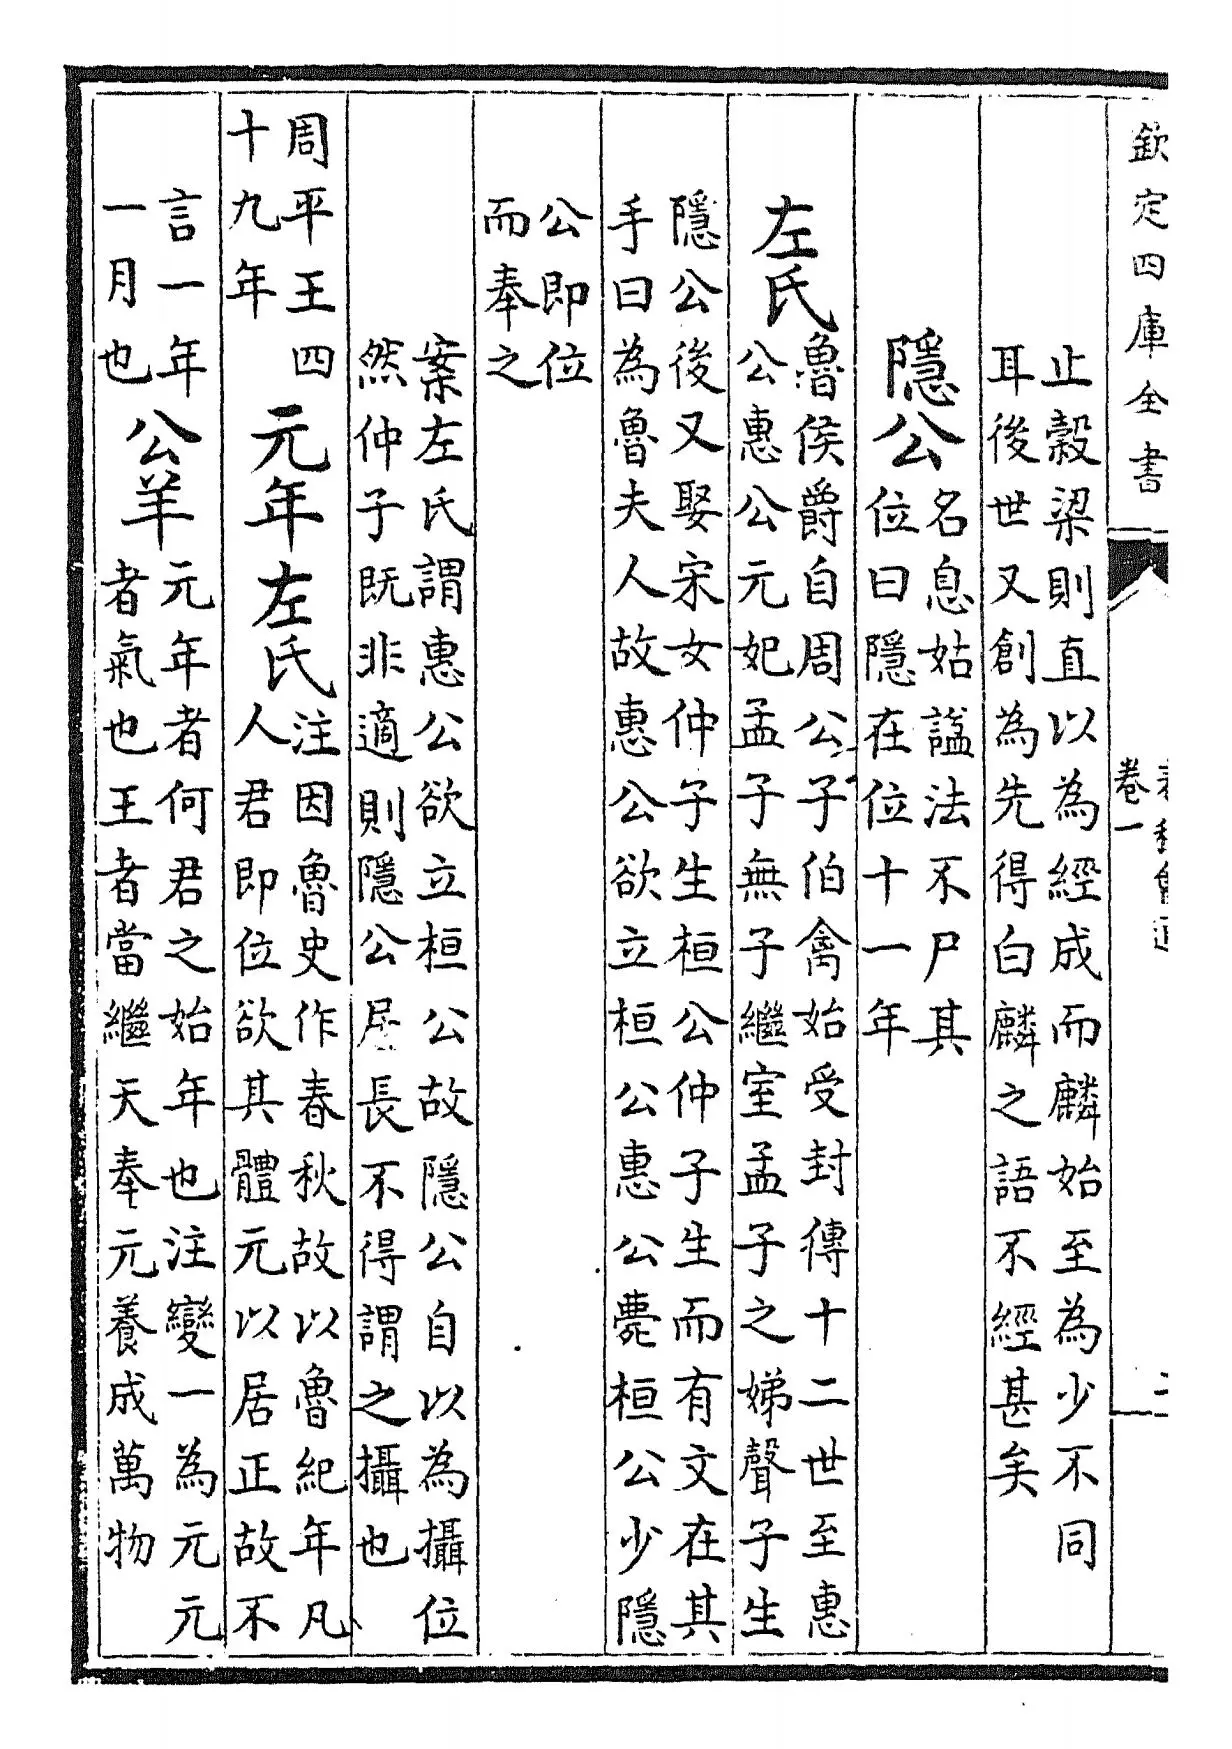 欽定四庫全書
卷一
止穀梁則直以為經成而麟始至為少不同
耳後世又創為先得白麟之語不經甚矣
隱公
名息姑諡法不尸其
位曰隱在位十一年
左氏
魯侯爵自周公子伯禽始受封傳十二世至惠
公惠公元妃孟子無子繼室孟子之娣聲子生
隱公後又娶宋女仲子生桓公仲子生而有文在其
手曰為魯夫人故惠公欲立桓公惠公薨桓公少隱
公即位
而奉之
案左氏謂惠公欲立桓公故隱公自以為攝位
然仲子既非適則隱公居長不得謂之攝也
周平王四
十九年
元年左氏
注因魯史作春秋故以魯紀年凡
人君即位欲其體元以居正故不
言一年
一月也
公羊
元年者何君之始年也注變一為元元
者氣也王者當繼天奉元養成萬物